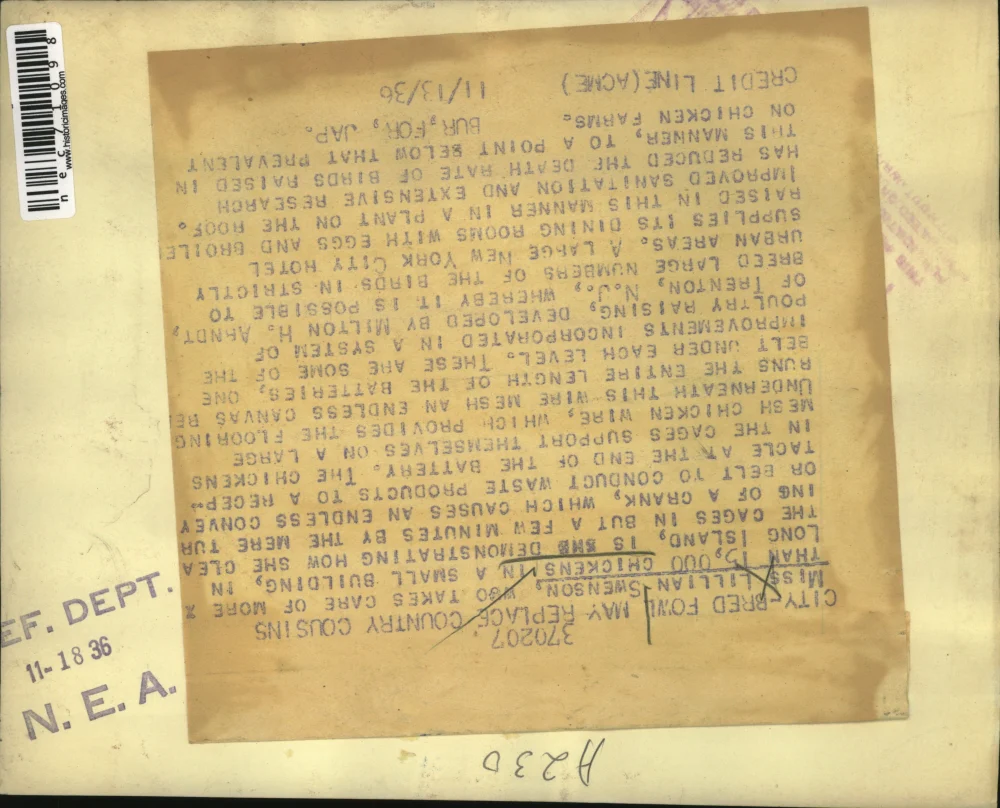 370207
CITY-BRED FOWL MAY REPLACE COUNTRY COUSINS
MISS LILLIAN SWENSON, WHO TAKES CARE OF MORE
THAN 15,000 CHICKENS IN A SMALL BUILDING, IN
LONG ISLAND, IS SHE DEMONSTRATING HOW SHE CLEA
THE CAGES IN BUT A FEW MINUTES BY THE MERE TUR
ING OF A CRANK, WHICH CAUSES AN ENDLESS CONVEY
OR BELT TO CONDUCT WASTE PRODUCTS TO A RECEP-
TACLE AT THE END OF THE BATTERY. THE CHICKENS
IN THE CAGES SUPPORT THEMSELVES ON A LARGE
MESH CHICKEN WIRE, WHICH PROVIDES THE FLOORING
UNDERNEATH THIS WIRE MESH AN ENDLESS CANVAS BE
RUNS THE ENTIRE LENGTH OF THE BATTERIES, ONE
BELT UNDER EACH LEVEL. THESE ARE SOME OF THE
IMPROVEMENTS INCORPORATED IN A SYSTEM OF
POULTRY RAISING, DEVELOPED BY MILTON H. ARNDT,
OF TRENTON, N.J., WHEREBY IT IS POSSIBLE TO
BREED LARGE NUMBERS OF THE BIRDS IN STRICTLY
URBAN AREAS. A LARGE NEW YORK CITY HOTEL
SUPPLIES ITS DINING ROOMS WITH EGGS AND BROILE
RAISED IN THIS MANNER IN A PLANT ON THE ROOF.
IMPROVED SANITATION AND EXTENSIVE RESEARCH
HAS REDUCED THE DEATH RATE OF BIRDS RAISED IN
THIS MANNER, TO A POINT BELOW THAT PREVALENT
ON CHICKEN FARMS. BUR, FOR, JAP.
CREDIT LINE (ACME) 11/13/36
EF. DEPT.
11-18 36
N. E. A.
A230
www.historicimages.com